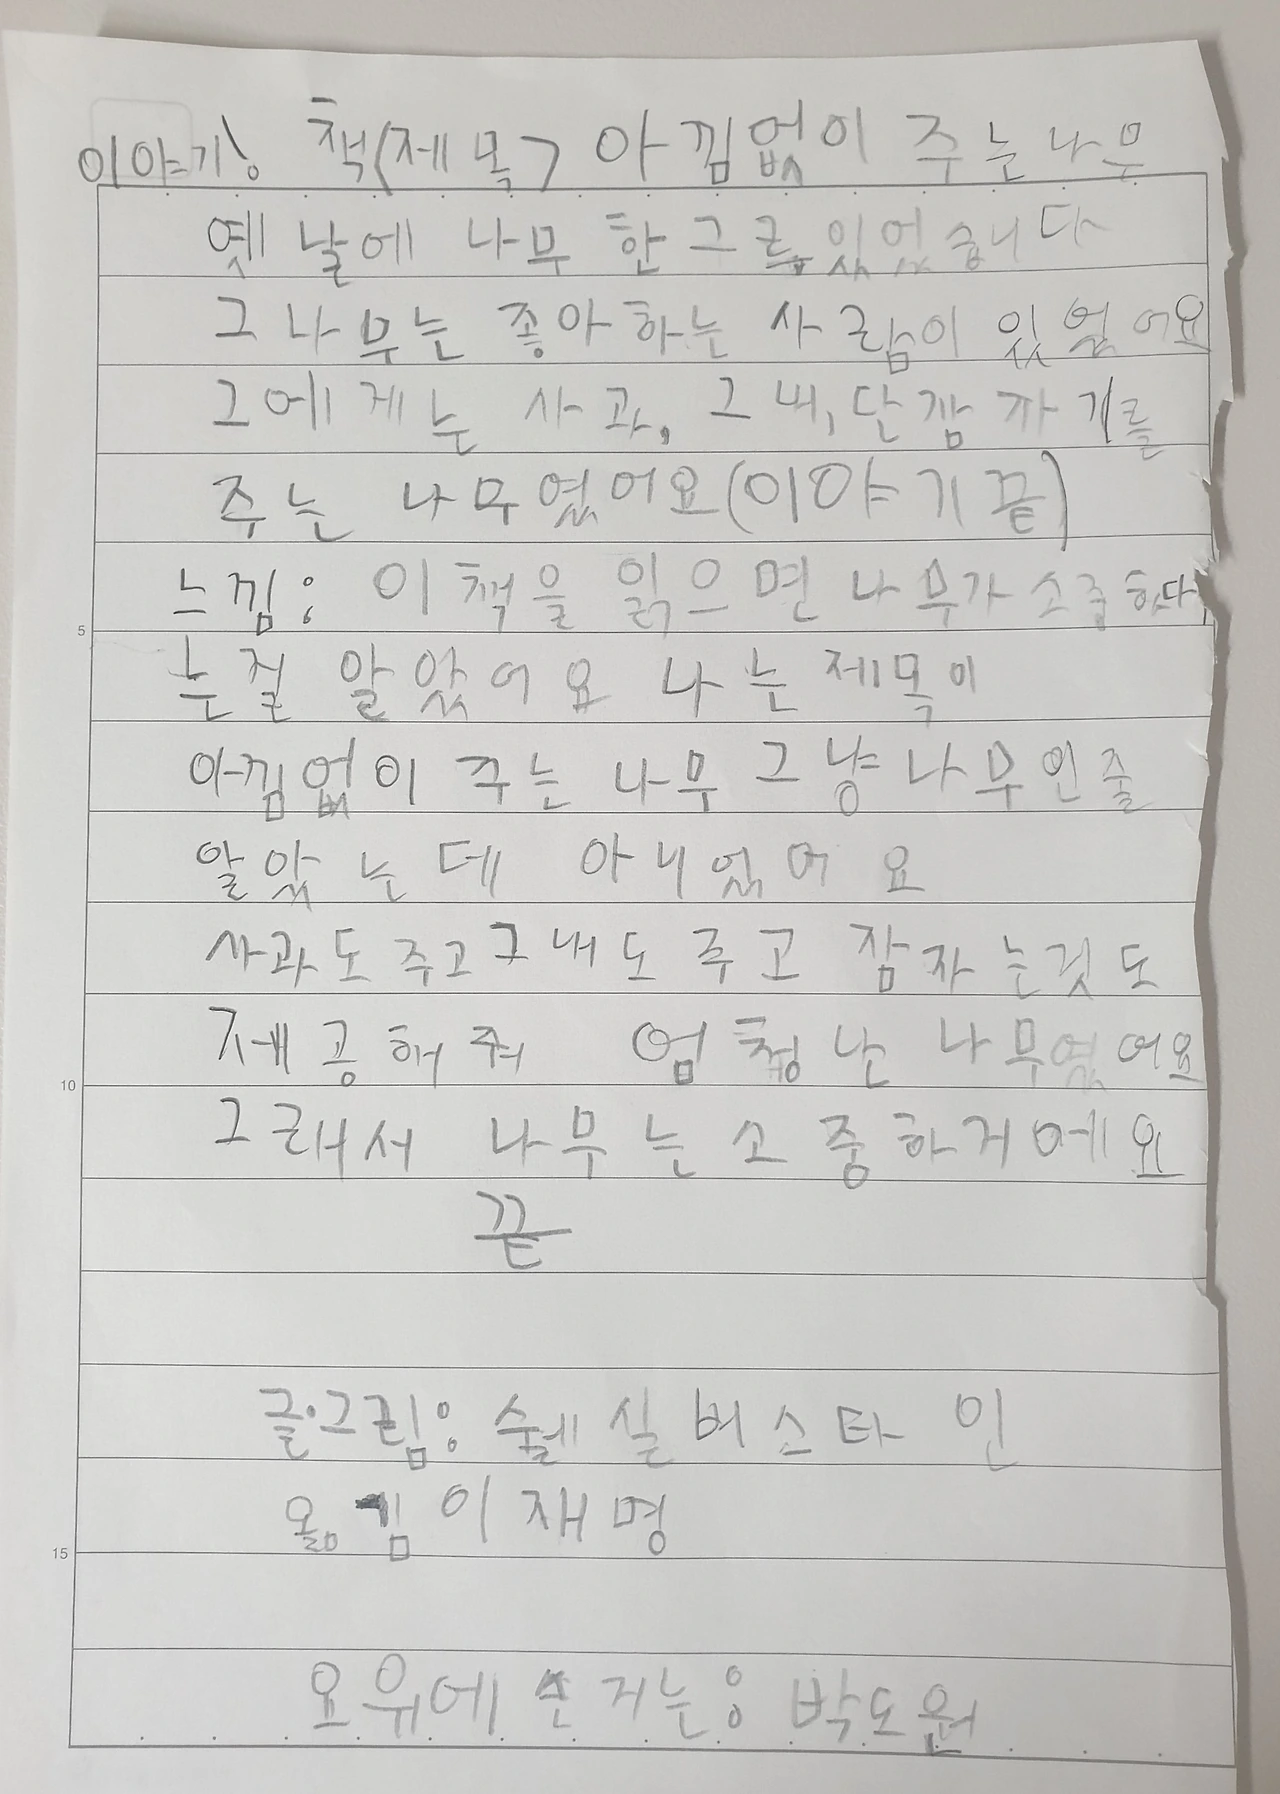 이야기: 책(제목) 아낌없이 주는나무
옛날에 나무 한그루 있었습니다
그나무는 좋아하는 사람이 있었어요
그에게는 사과, 그네, 단잠까기를
주는 나무였어요(이야기끝)
느낌: 이책을 읽으면 나무가소중하다
는걸 알았어요 나는제목이
아낌없이 주는 나무 그냥나무인줄
알았는데 아니었어요
사과도주고그네도 주고 잠자는것도
제공해줘 엄청난 나무였어요
그래서 나무는소중하거에요
끝
글·그림: 쉘실버스타인
옮김이재명
10
5
15
요위에쓴거는: 박도원